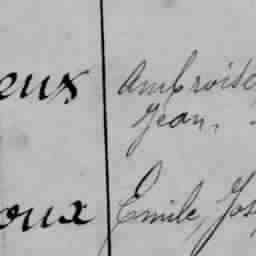 eux Ambroise
Jean.
oux Emile, Jos